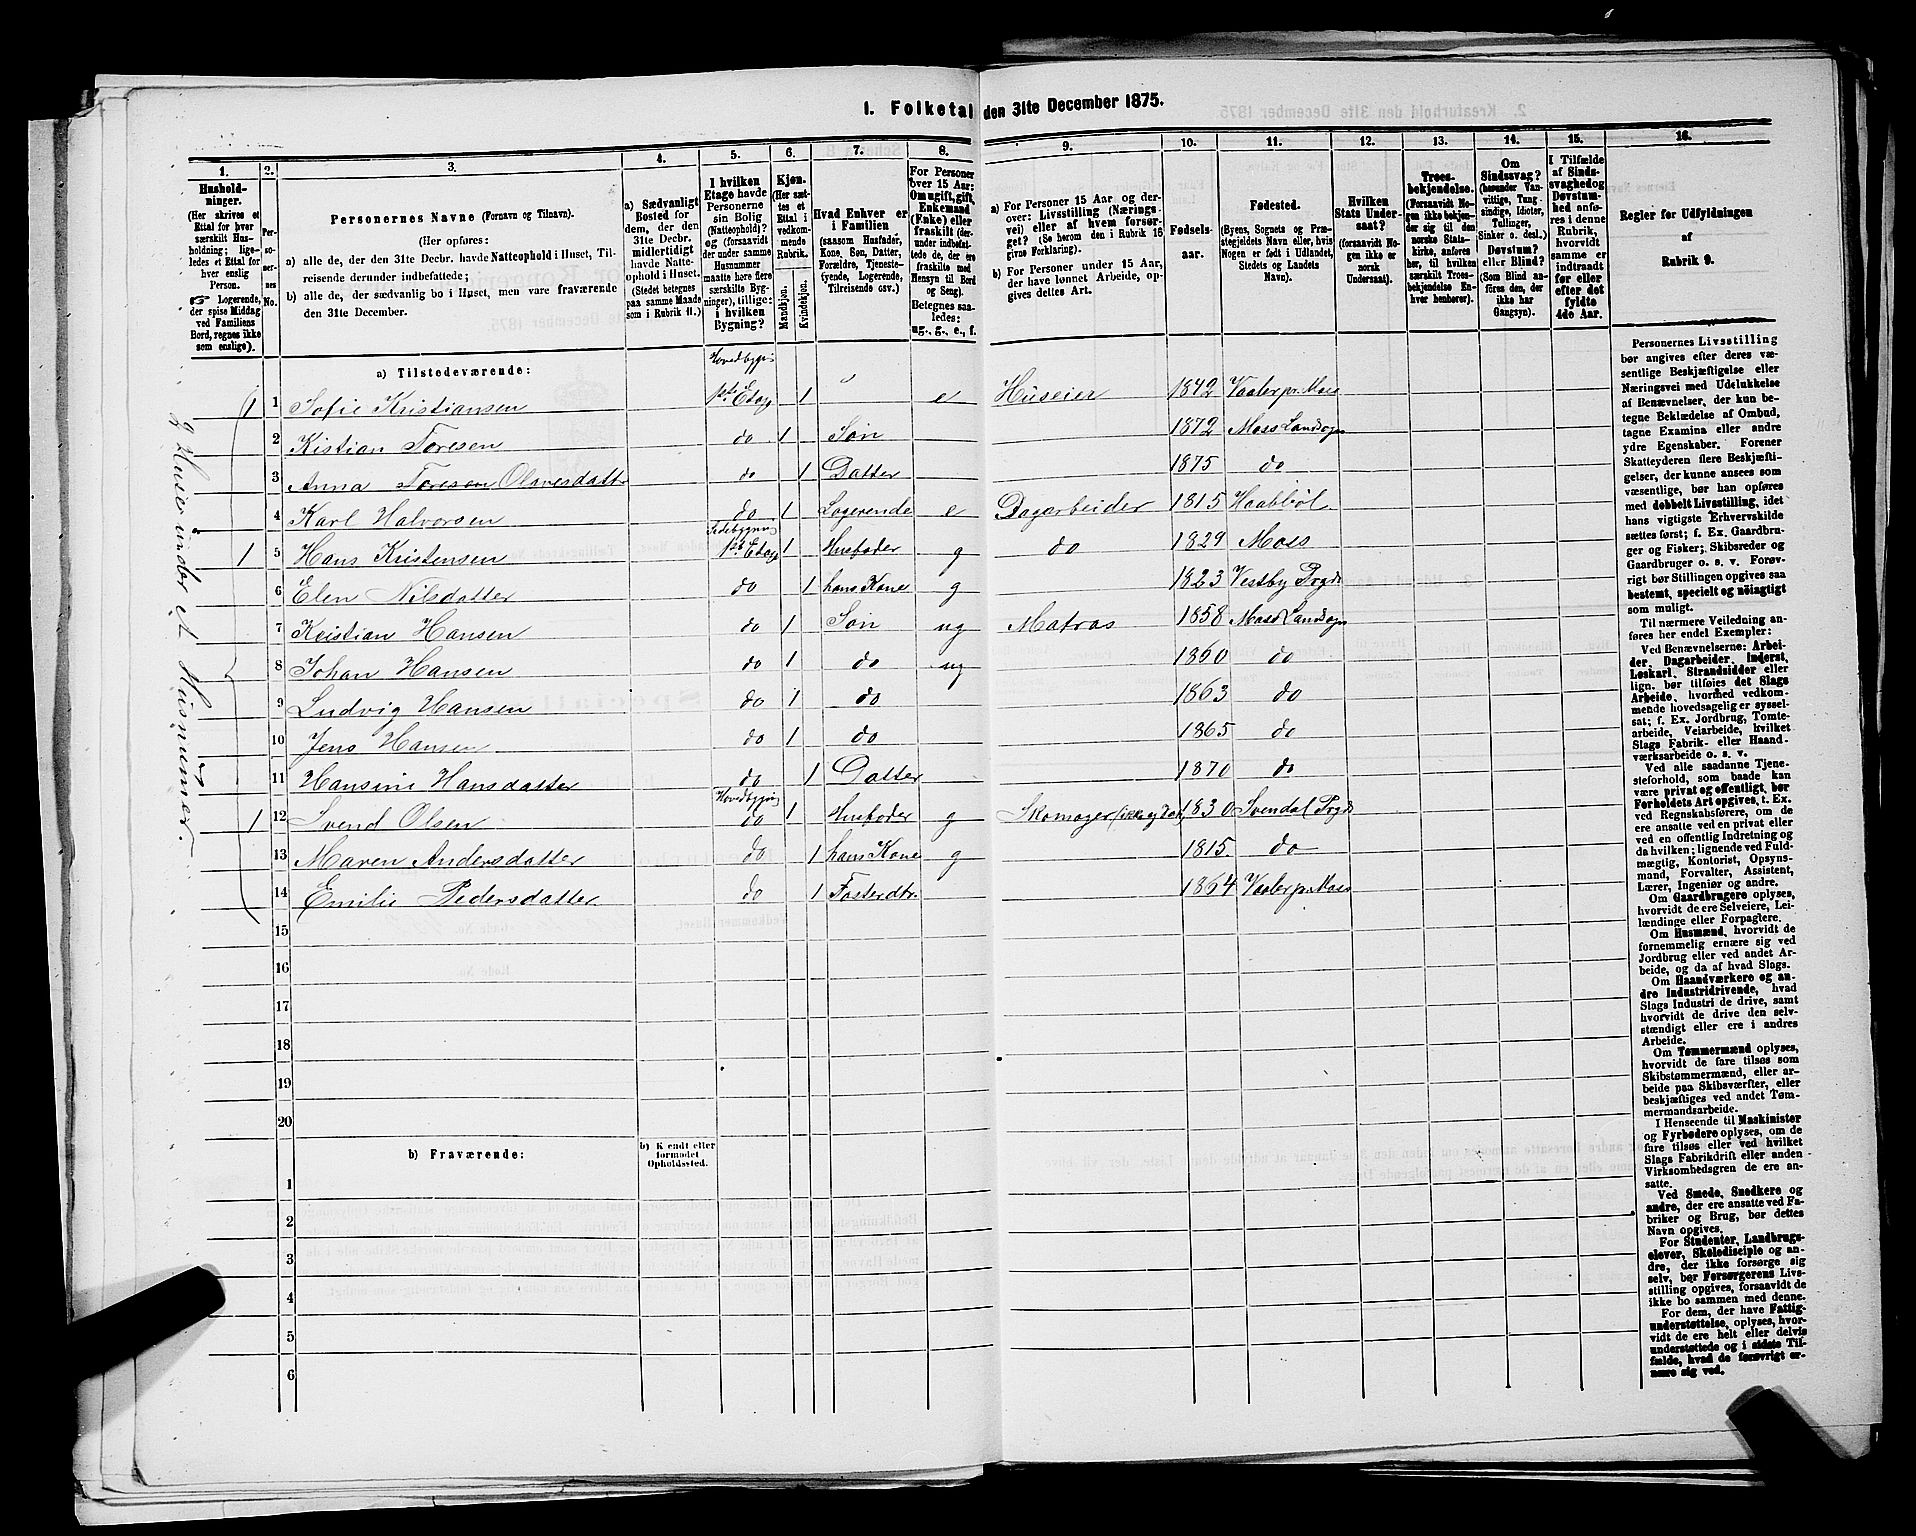 1. Folketal den 31te December 1875.
1. 2. 3. 4. 5. 6. 7. 8. 9. 10. 11. 12. 13. 14. 15. 16.
Husholdninger.
(Her skrives et
Ettal for hver
særskilt Husholdning;
ligeledes et Ettal for
hver enslig
Person.
Logerende,
der spise Middag
ved Familiens
Bord, regnes ikke
som enslige).
Personernes No.
Personernes Navne (Fornavn og Tilnavn).
(Her opføres:
a) alle de, der den 31te Decbr. havde Natteophold i Huset, Tilreisende derunder indbefattede;
b) alle de, der sædvanlig bo i Huset, men vare fraværende
den 31te December.
a) Sædvanligt
Bosted for
dem, der den
31te Decbr.
midlertidigt
havde Natteophold i Huset.
(Stedet betegnes
paa samme Maade
som i Rubrik 11.)
I hvilken
Etage havde
Personerne
sin Bolig
(Natteophold)?
og (forsaavidt
der under samme
Husnummer
maatte høre flere
særskilte Bygninger), tillige:
i hvilken
Bygning?
Kjøn.
(Her sættes et
Ettal i
vedkommende
Rubrik.
Mandkjøn.
Kvindekjøn.
Hvad Enhver er
i Familien
(saasom Husfader,
Kone, Søn, Datter,
Forældre, Tjenestetyende, Logerende,
Tilreisende osv.)
For Personer
over 15 Aar:
Om ugift, gift,
Enkemand
(Enke) eller
fraskilt (derunder indbefattede de, der ere
fraskilte med
Hensyn til Bord
og Seng).
Betegnes saaledes:
ug., g., e., f.
a) For Personer 15 Aar og derover: Livsstilling (Næringsvei) eller af hvem forsørget? (Se herom den i Rubrik 16
givne Forklaring).
b) For Personer under 15 Aar,
der have lønnet Arbeide, opgives dettes Art.
Fødselsaar.
Fødested.
(Byens, Sognets og Præstegjeldets Navn eller, hvis
Nogen er født i Udlandet,
Stedets og Landets
Navn).
Hvilken
Stats Undersaat?
(forsaavidt Nogen ikke er
norsk
Undersaat).
Troesbekjendelse.
(Forsaavidt Nogen ikke bekjender sig til den
norske Statskirke, anføres
her, til hvilken
særskilt Troesbekjendelse Enhver henhører).
Om
Sindssvag?
(herunder Vanvittige, Tungsindige, Idioter,
Tullinger,
Sinker o. desl.)
Døvstum?
eller Blind?
(Som Blind anføres den, der
ikke har
Gangsyn).
I Tilfælde
af Sindssvaghed og
Døvstumhed anføres i denne
Rubrik,
hvorvidt
samme er
indtraadt
før eller
efter det
fyldte
4de Aar.
Regler for Udfyldningen
af
Rubrik 9.
a) Tilstedeværende:
1 1 Sofie Kristiansen Hovedbygn 1ste Etag 1 " e Huseier 1842 Vaaler pr. Moss
2 Kistian Toresen do 1 Søn 1872 Moss Landsogn
3 Anna Toresen Olavesdatter do 1 Datter 1875 do
4 Karl Halvorsen do 1 Logerende e Dagarbeider 1815 Haabbøl
1 5 Hans Kristensen Sidebygning 1ste Etag 1 Husfader g do 1829 Moss
6 Elen Nilsdatter do 1 hans Kone g 1823 Vestby Prgd
7 Kristian Hansen do 1 Søn ug Matros 1858 Moss Landsogn
8 Johan Hansen do 1 do ug 1860 do
9 Ludvig Hansen do 1 do 1863 do
10 Jens Hansen do 1 do 1865 do
11 Hansine Hansdatter do 1 Datter 1870 do
1 12 Svend Olsen Hovedbygning do 1 Husfader g Skomager 1830 Svendal Prgd
13 Maren Andersdatter do 1 hans Kone g 1815. do
14 Emilie Pedersdatter do 1 Fosterdtr. 1864 Vaaler pr. Moss
15
16
17
18
19
20
b) Fraværende:
b) Kjendt eller
formodet
Opholdssted.
1
2
3
4
5
6
under et Husnummer.
Personernes Livsstilling
bør angives efter deres væsentlige Beskjæftigelse eller
Næringsvei med Udelukkelse
af Benævnelser, der kun betegne Beklædelse af Ombud,
tagne Examina eller andre
ydre Egenskaber. Forener
Skatteyderen flere Beskjæftigelser, der kunne ansees som
væsentlige, bør han opføres
med dobbelt Livsstilling, idet
hans vigtigste Erhvervskilde
sættes først; f. Ex. Gaardbruger og Fisker; Skibsreder og
Gaardbruger o. s. v. Forøvrigt bør Stillingen opgives saa
bestemt, specielt og nøiagtigt
som muligt.
Til nærmere Veiledning anføres her endel Exempler:
Ved Benævnelserne: Arbeider, Dagarbeider, Inderst,
Løskarl, Strandsidder eller
lign. bør tilføies det Slags
Arbeide, hvormed vedkommende hovedsagelig er sysselsat; f. Ex. Jordbrug, Tomtearbeide, Veiarbeide, hvilket
Slags Fabrik- eller Haandværksarbeide o. s. v.
Ved alle saadanne Tjenesteforhold, som baade kan
være privat og offentligt, bør
Forholdets Art opgives, f. Ex.
ved Regnskabsførere, om de
ere ansatte ved en privat eller
ved en offentlig Indretning og
da hvilken; lignende ved Fuldmægtig, Kontorist, Opsynsmand, Forvalter, Assistent,
Lærer, Ingeniør og andre.
Om Gaardbrugere oplyses,
hvorvidt de ere Selveiere, Leilændinge eller Forpagtere.
Om Husmænd, hvorvidt de
fornemmelig ernære sig ved
Jordbrug eller ved andet Arbeide, og da af hvad Slags.
Om Haandværkere og andre Industridrivende, hvad
Slags Industri de drive, samt
hvorvidt de drive den selvstændigt eller ere i andres
Arbeide.
Om Tømmermænd oplyses,
hvorvidt de fare tilsøs som
Skibstømmermænd, eller arbeide paa Skibsværfter, eller
beskjæftiges ved andet Tømmermandsarbeide.
I Henseende til Maskinister
og Fyrbødere oplyses, om de
fare tilsøs eller ved hvilket
Slags Fabrikdrift eller anden
Virksomhedsgren de ere ansatte.
Ved Smede, Snedkere og
andre, der ere ansatte ved Fabriker og Brug, bør dettes
Navn opgives.
For Studenter, Landbrugselever, Skoledisciple og andre, der ikke forsørge sig
selv, bør Forsørgerens Livsstilling opgives, forsaavidt de
ikke bo sammen med denne.
For dem, der have Fattigunderstøttelse, oplyses, hvorvidt de ere helt eller delvis
understøttede og i sidste Tilfælde, hvad de forøvrigt ernære sig ved.